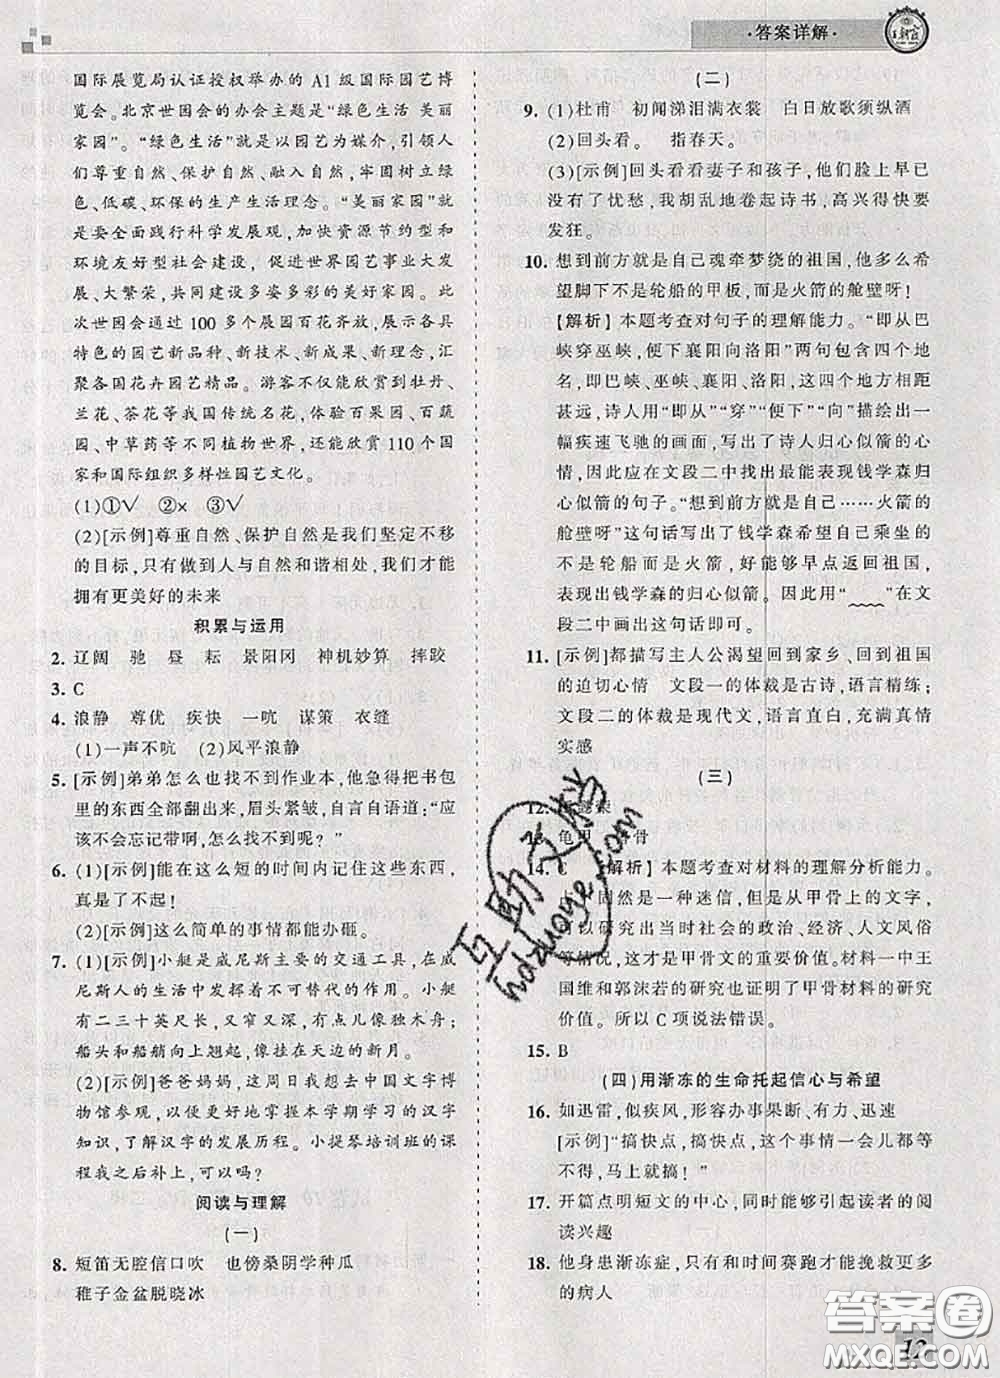 ·答案详解·
国际展览局认证授权举办的 A1 级国际园艺博
览会。北京世园会的办会主题是“绿色生活 美丽
家园”。“绿色生活”就是以园艺为媒介,引领人
们尊重自然、保护自然、融入自然,牢固树立绿
色、低碳、环保的生产生活理念。“美丽家园”就
是要全面践行科学发展观,加快资源节约型和
环境友好型社会建设,促进世界园艺事业大发
展、大繁荣,共同建设多姿多彩的美好家园。此
次世园会通过 100 多个展园百花齐放,展示各具
特色的园艺新品种、新技术、新成果、新理念,汇
聚各国花卉园艺精品。游客不仅能欣赏到牡丹、
兰花、茶花等我国传统名花,体验百果园、百蔬
园、中草药等不同植物世界,还能欣赏 110 个国
家和国际组织多样性园艺文化。
(1)①√ ②× ③√
(2)[示例]尊重自然、保护自然是我们坚定不移
的目标,只有做到人与自然和谐相处,我们才能
拥有更美好的未来
积累与运用
2. 辽阔 驰 昼 耘 景阳冈 神机妙算 摔跤
3. C
4. 浪静 尊优 疾快 一吭 谋策 衣缝
(1)一声不吭 (2)风平浪静
5. [示例]弟弟怎么也找不到作业本,他急得把书包
里的东西全部翻出来,眉头紧皱,自言自语道:“应
该不会忘记带啊,怎么找不到呢?”
6. (1)[示例]能在这么短的时间内记住这些东西,
真是了不起!
(2)[示例]这么简单的事情都能办砸。
7. (1)[示例]小艇是威尼斯主要的交通工具,在威
尼斯人的生活中发挥着不可替代的作用。小艇
有二三十英尺长,又窄又深,有点像独木舟;
船头和船艄向上翘起,像挂在天边的新月。
(2)[示例]爸爸妈妈,这周日我想去中国文字博
物馆参观,以便更好地掌握本学期学习的汉字
知识,了解汉字的发展历程。小提琴培训班的课
程我之后补上,可以吗?
阅读与理解
(一)
8. 短笛无腔信口吹 也傍桑阴学种瓜
稚子金盆脱晓冰
(二)
9. (1)杜甫 初闻涕泪满衣裳 白日放歌须纵酒
(2)回头看。 指春天。
(3)[示例]回头看看妻子和孩子,他们脸上早已
没有了忧愁,我胡乱地卷起诗书,高兴得快要
发狂。
10. 想到前方就是自己魂牵梦绕的祖国,他多么希
望脚下不是轮船的甲板,而是火箭的舱壁呀!
【解析】本题考查对句子的理解能力。“即从巴
峡穿巫峡,便下襄阳向洛阳”两句包含四个地
名,即巴峡、巫峡、襄阳、洛阳,这四个地方相距
甚远,诗人用“即从”“穿”“便下”“向”描绘出一
幅疾速飞驰的画面,写出了诗人归心似箭的心
情,因此应在文段二中找出最能表现钱学森归
心似箭的句子。“想到前方就是自己……火箭的
舱壁呀”这句话写出了钱学森希望自己乘坐的
不是轮船而是火箭,希望能够早点返回祖国,
表现出钱学森的归心似箭。因此用“﹏﹏”在文
段二中画出这句话即可。
11. [示例]都描写主人公渴望回到家乡、回到祖国
的迫切心情 文段一的体裁是古诗,语言精练;
文段二的体裁是现代文,语言直白,充满真情
实感
(三)
12. 懿荣
13. 龟甲 骨
14. C 【解析】本题考查对材料的理解分析能力。
固然是一种迷信,但是从甲骨上的文字,
可以研究出当时社会的政治、经济、人文风俗
等情况,这才是甲骨文的重要价值。材料一中王
国维和郭沫若的研究也证明了甲骨材料的研究
价值。所以 C 项说法错误。
15. B
(四)用渐冻的生命托起信心与希望
16. 如迅雷,似疾风,形容办事果断、有力、迅速
[示例]“搞快点,搞快点,这个事情一会儿都等
不得,马上就搞!”
17. 开篇点明短文的中心,同时能够引起读者的阅
读兴趣
18. 他身患渐冻症,只有和时间赛跑才能挽救更多
的病人
互助文档
hdzuoye.com
答案圈
MXQE.COM
12